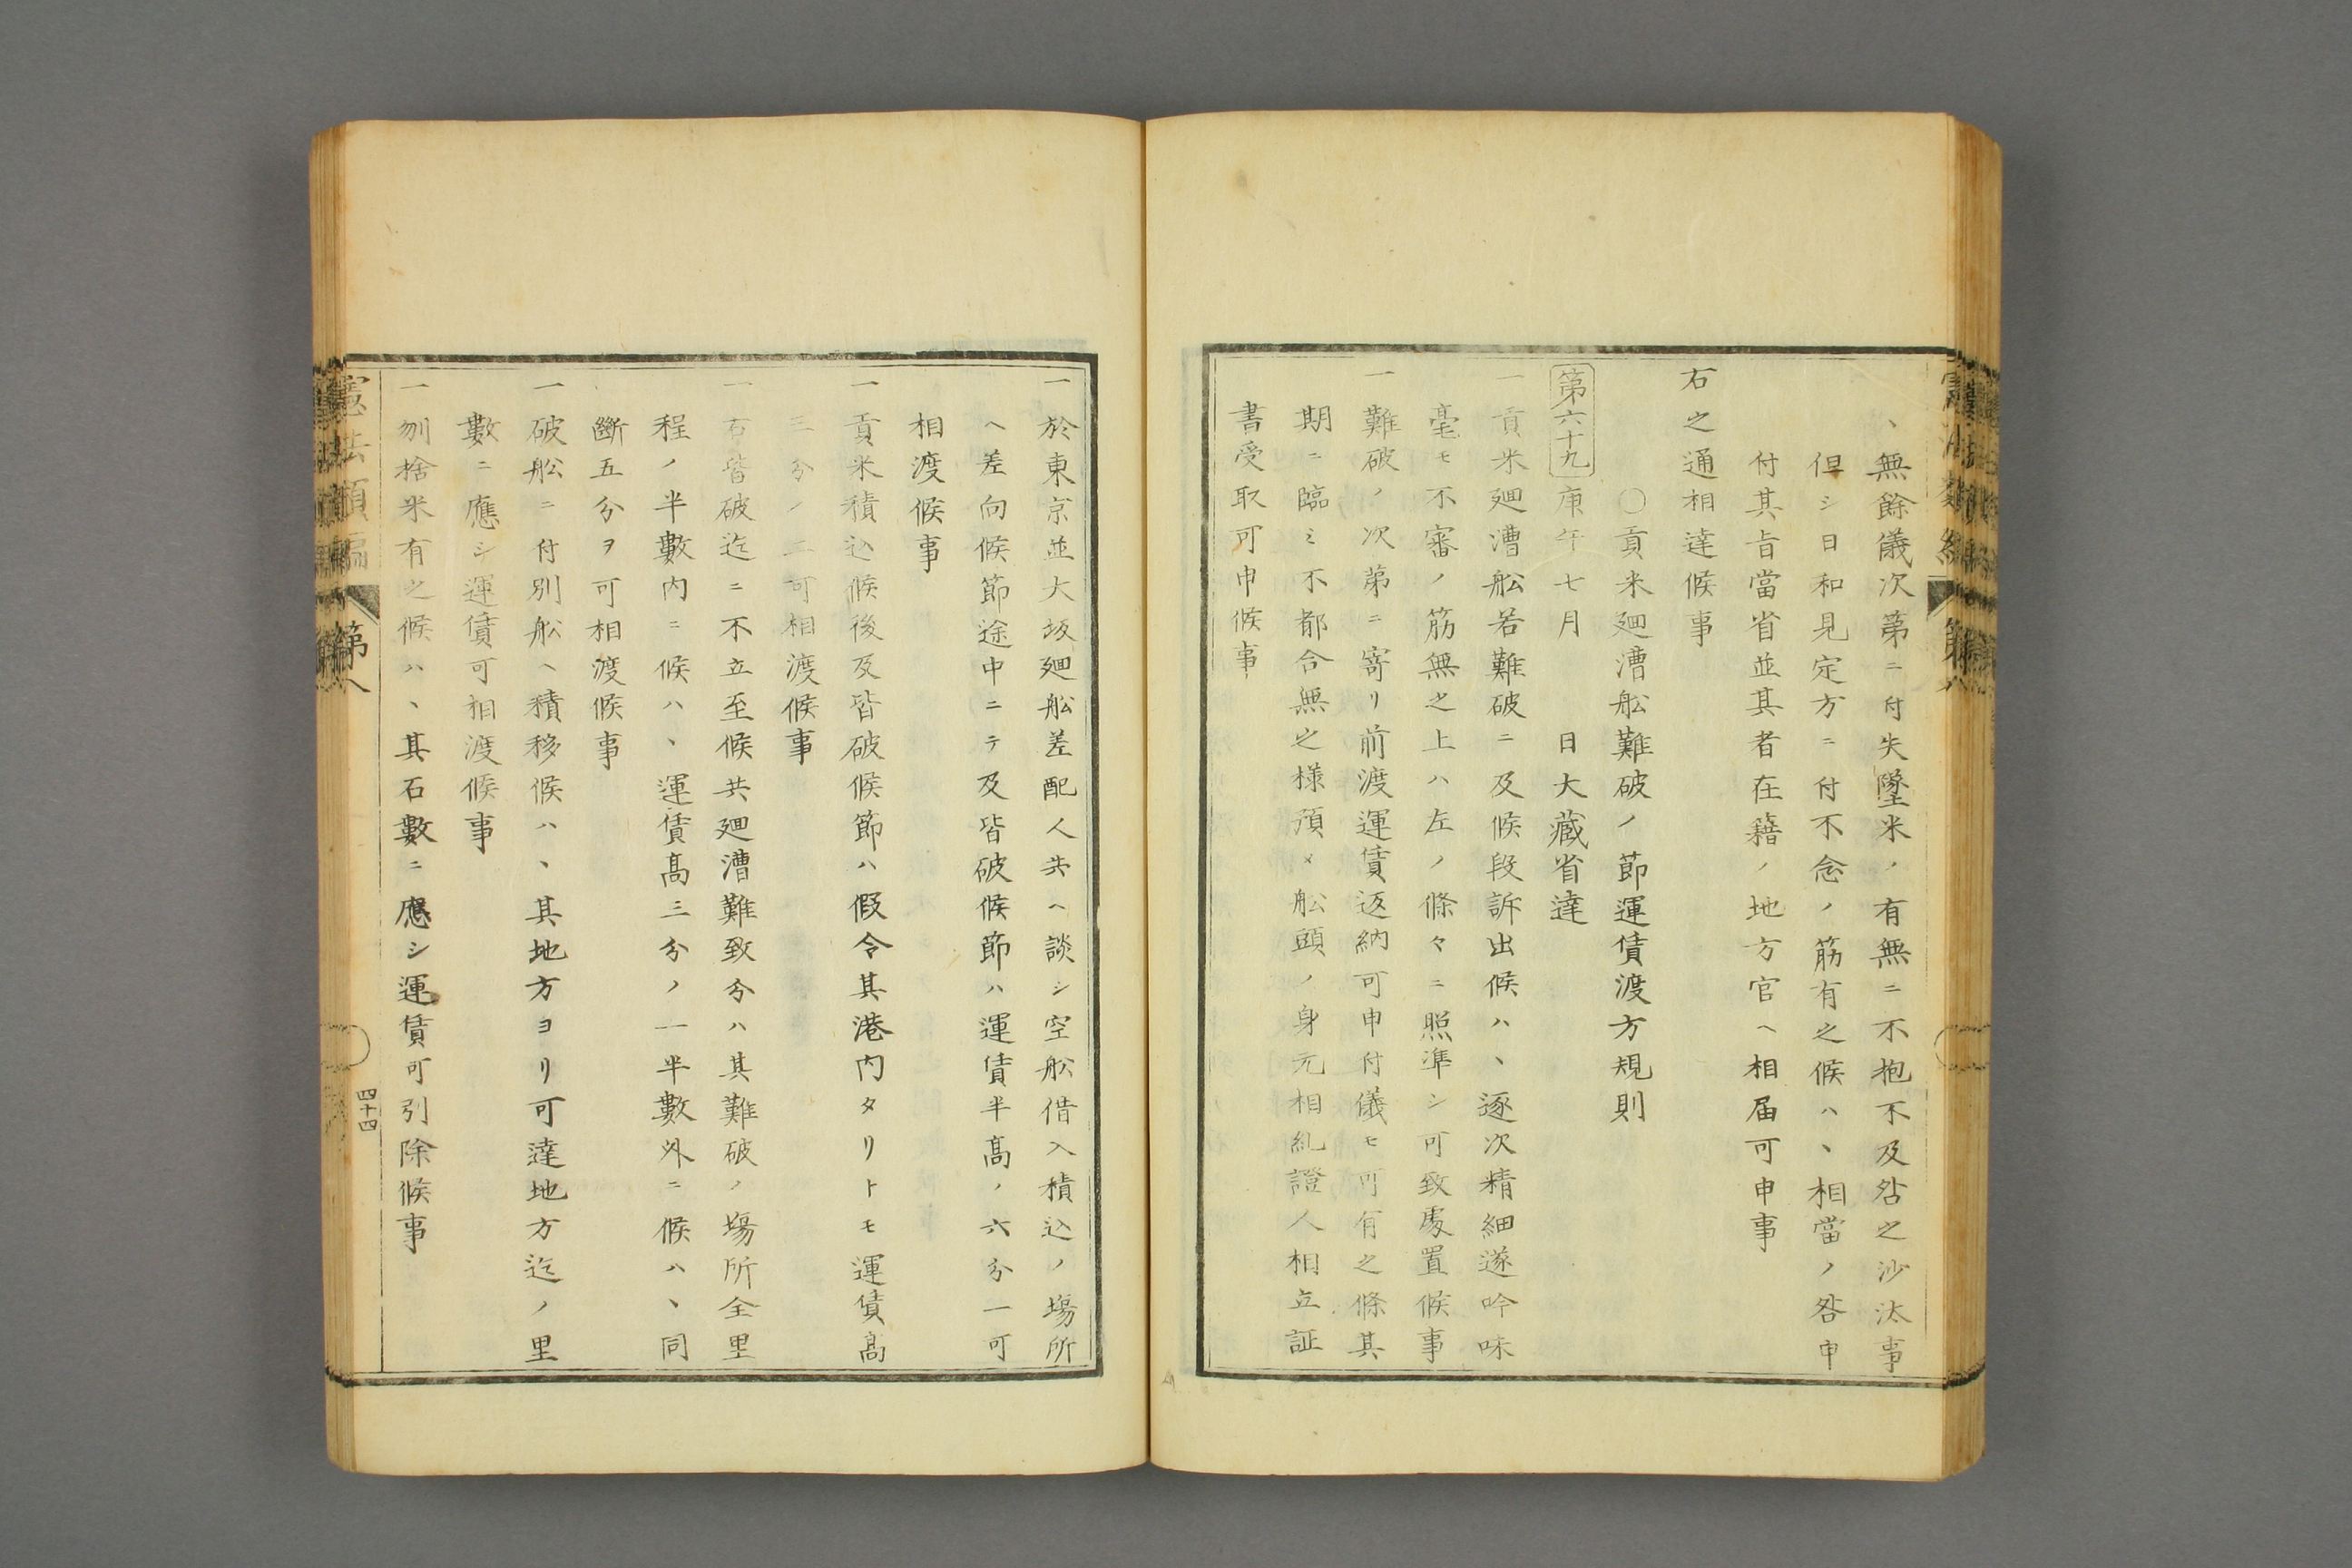 、無餘儀次第ニ付失墜米ノ有無ニ不抱不及咎之沙汰事
但シ日和見定方ニ付不念ノ筋有之候ハ、相當ノ咎申
付其旨當省並其者在籍ノ地方官ヘ相届可申事
右之通相達候事
〇貢米廻漕舩難破ノ節運賃渡方規則
第六十九 庚午七月 日大藏省達
一貢米廻漕舩若難破ニ及候段訴出候ハ、逐次精細遂吟味
毫モ不審ノ筋無之上ハ左ノ條々ニ照準シ可致處置候事
一難破ノ次第ニ寄リ前渡運賃返納可申付儀モ可有之條其
期ニ臨ミ不都合無之様預メ舩頭ノ身元相糺證人相立証
書受取可申候事
一於東京並大坂廻舩差配人共ヘ談シ空舩借入積込ノ塲所
ヘ差向候節途中ニテ及皆破候節ハ運賃半高ノ六分一可
相渡候事
一貢米積込候後及皆破候節ハ假令其港内タリトモ運賃高
三分ノ二可相渡候事
一右皆破迄ニ不立至候共廻漕難致分ハ其難破ノ塲所全里
程ノ半數内ニ候ハ、運賃高三分ノ一半數外ニ候ハ、同
斷五分ヲ可相渡候事
一破舩ニ付別舩ヘ積移候ハ、其地方ヨリ可達地方迄ノ里
數ニ應シ運賃可相渡候事
一刎捨米有之候ハ、其石數ニ應シ運賃可引除候事
憲法類編 第八
四十四